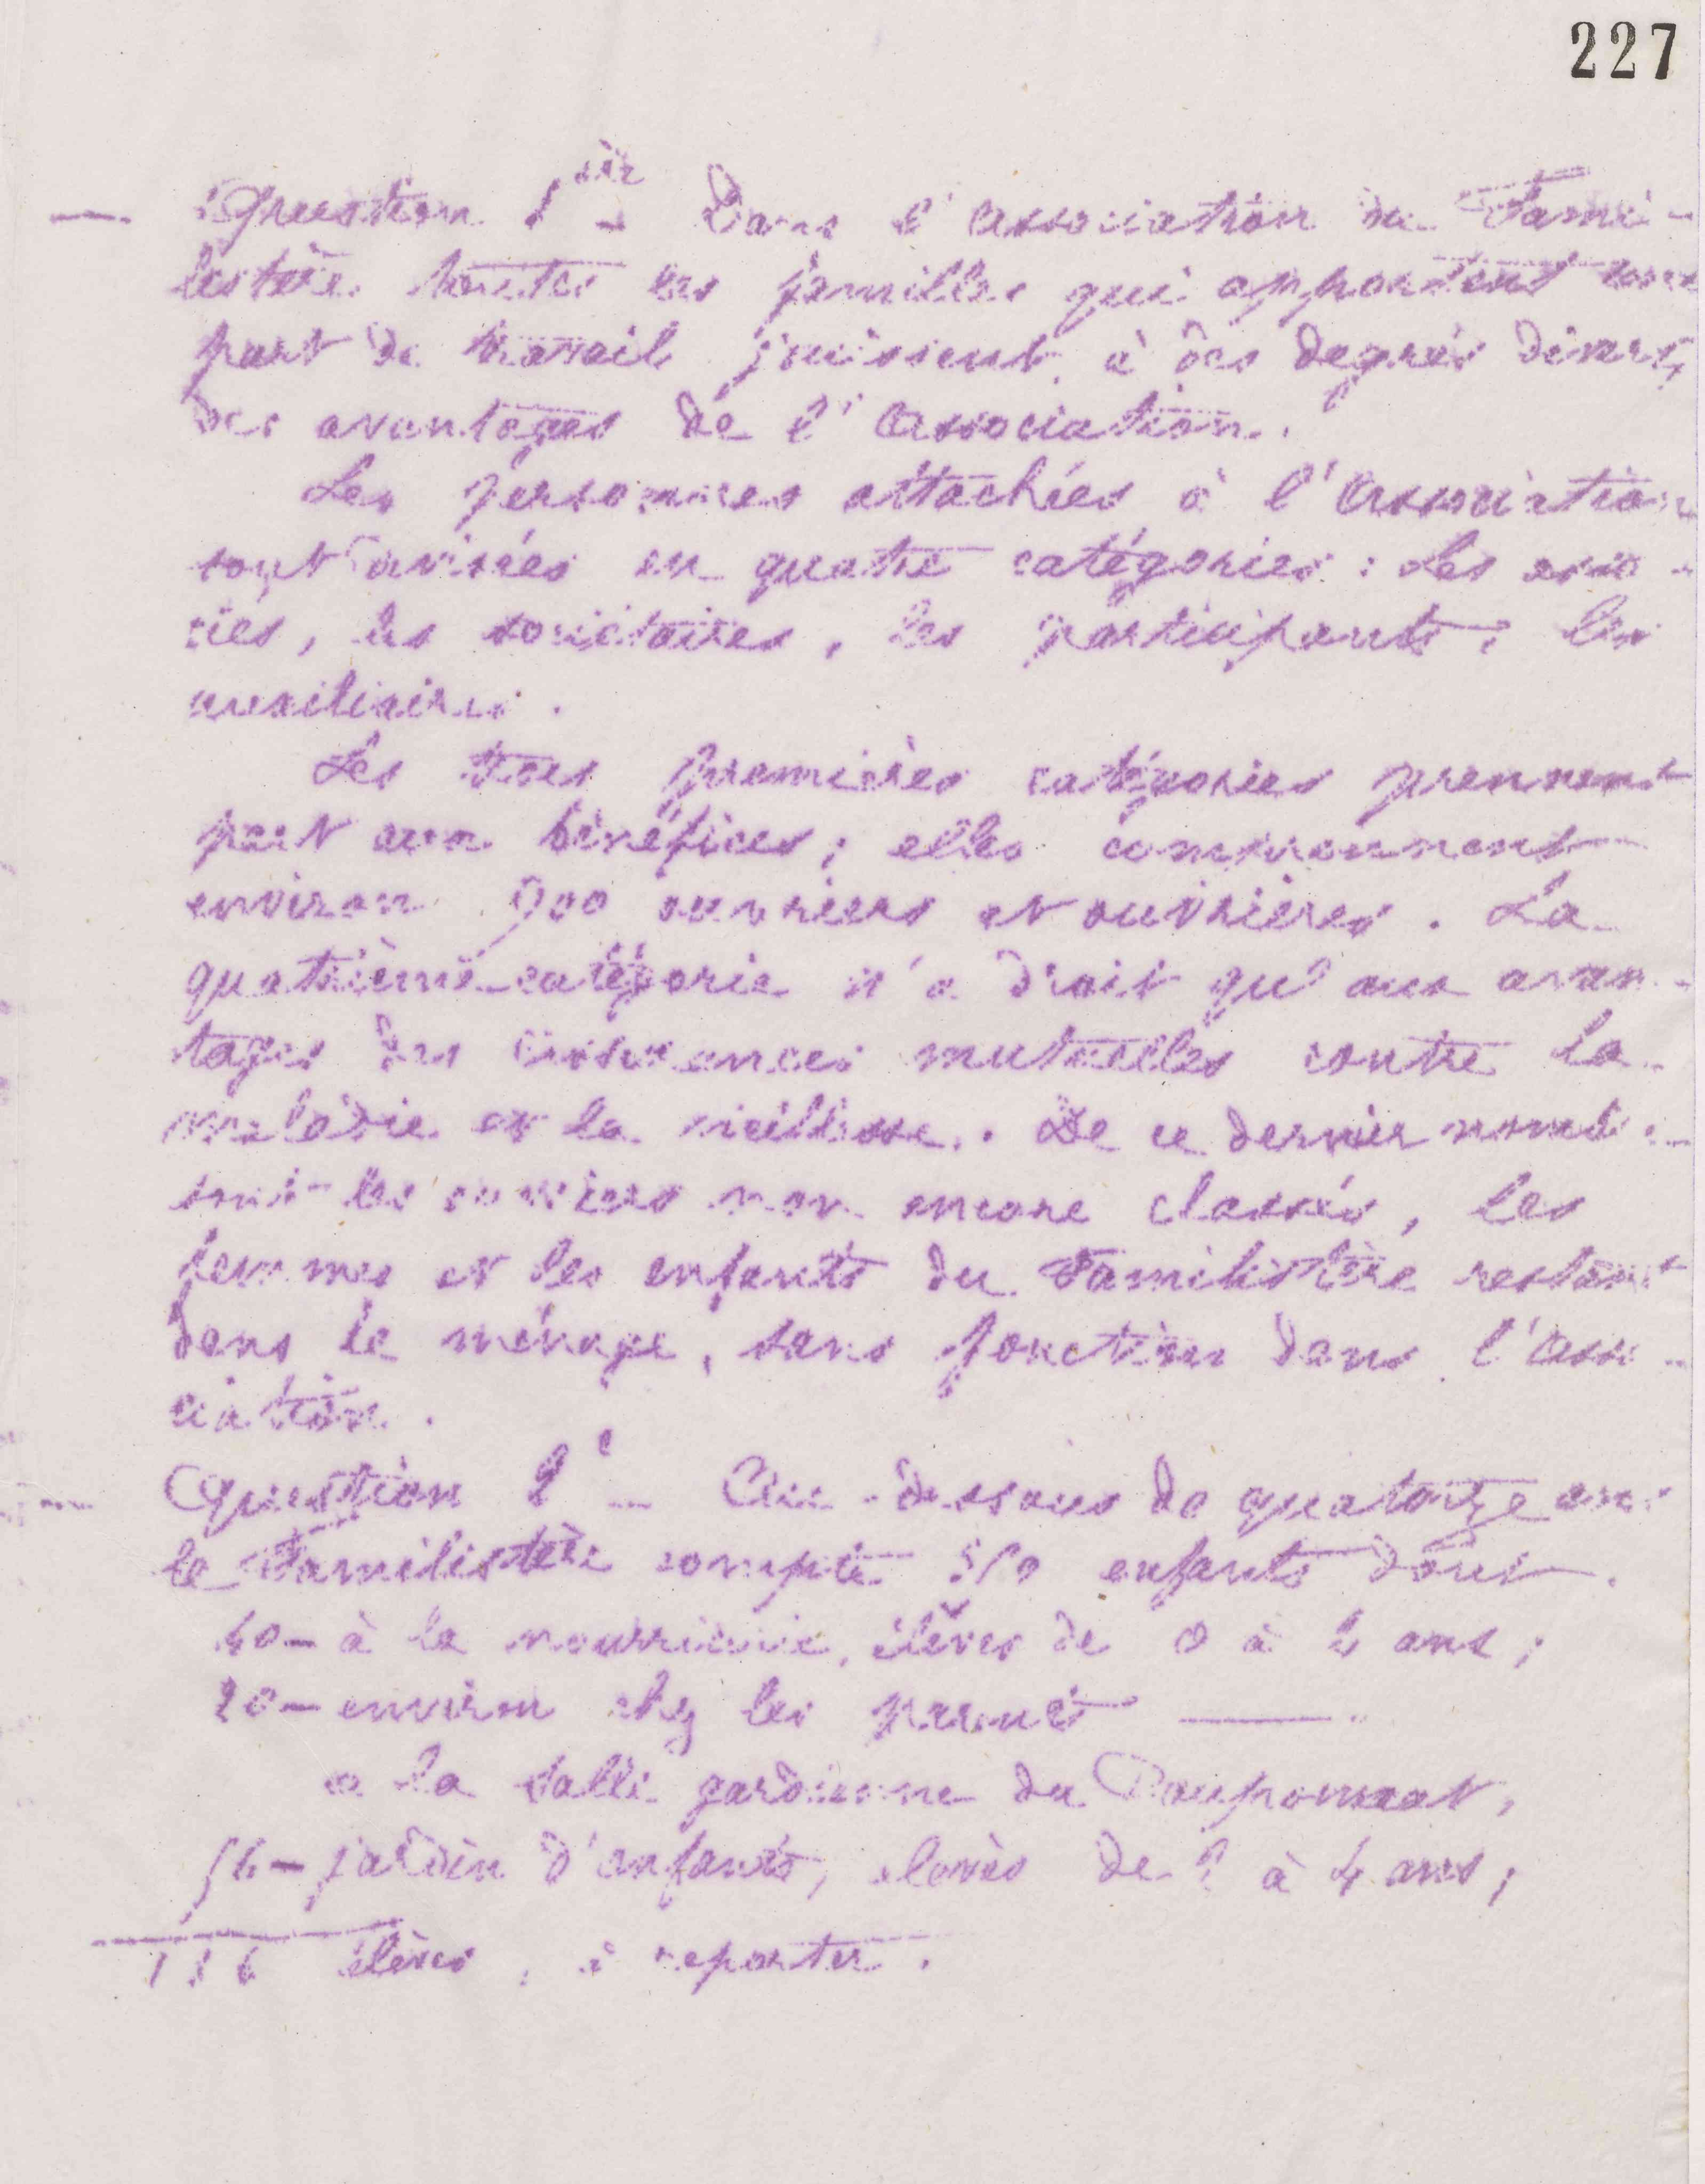 227
— Question 1ère — Dans l'Association du Fami-
listère toutes les familles qui apportent leur
part de travail jouissent, à des degrés divers,
des avantages de l'Association.
Les personnes attachées à l'Association
sont divisées en quatre catégories : Les asso-
ciés, les sociétaires, les participants, les
auxiliaires.
Les trois premières catégories prennent
part aux bénéfices ; elles comprennent
environ 900 ouvriers et ouvrières. La
quatrième catégorie n'a droit qu'aux avan-
tages des assurances mutuelles contre la
maladie et la vieillesse. De ce dernier nombre
sont les ouvriers non encore classés, les
femmes et les enfants du Familistère restant
dans le ménage, sans fonction dans l'Asso-
ciation.
— Question 2e — Au-dessous de quatorze ans
le Familistère compte enfants dont
40 — à la nourricerie, élèves de 0 à 2 ans ;
20 — environ chez les parents —
à la salle gardienne du Pouponnat,
jardin d'enfants, élevés de 2 à 4 ans ;
élèves, à reporter.